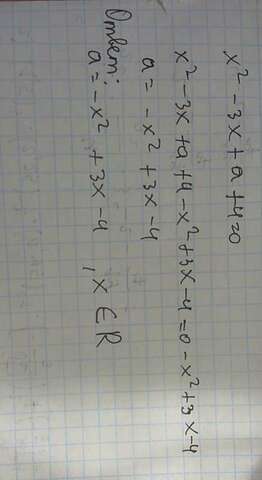 x² - 3x + a + 4 = 0
x² - 3x + a + 4 - x² + 3x - 4 = 0 - x² + 3x - 4
a = - x² + 3x - 4
Ответ:
a = - x² + 3x - 4 , x ∈ R